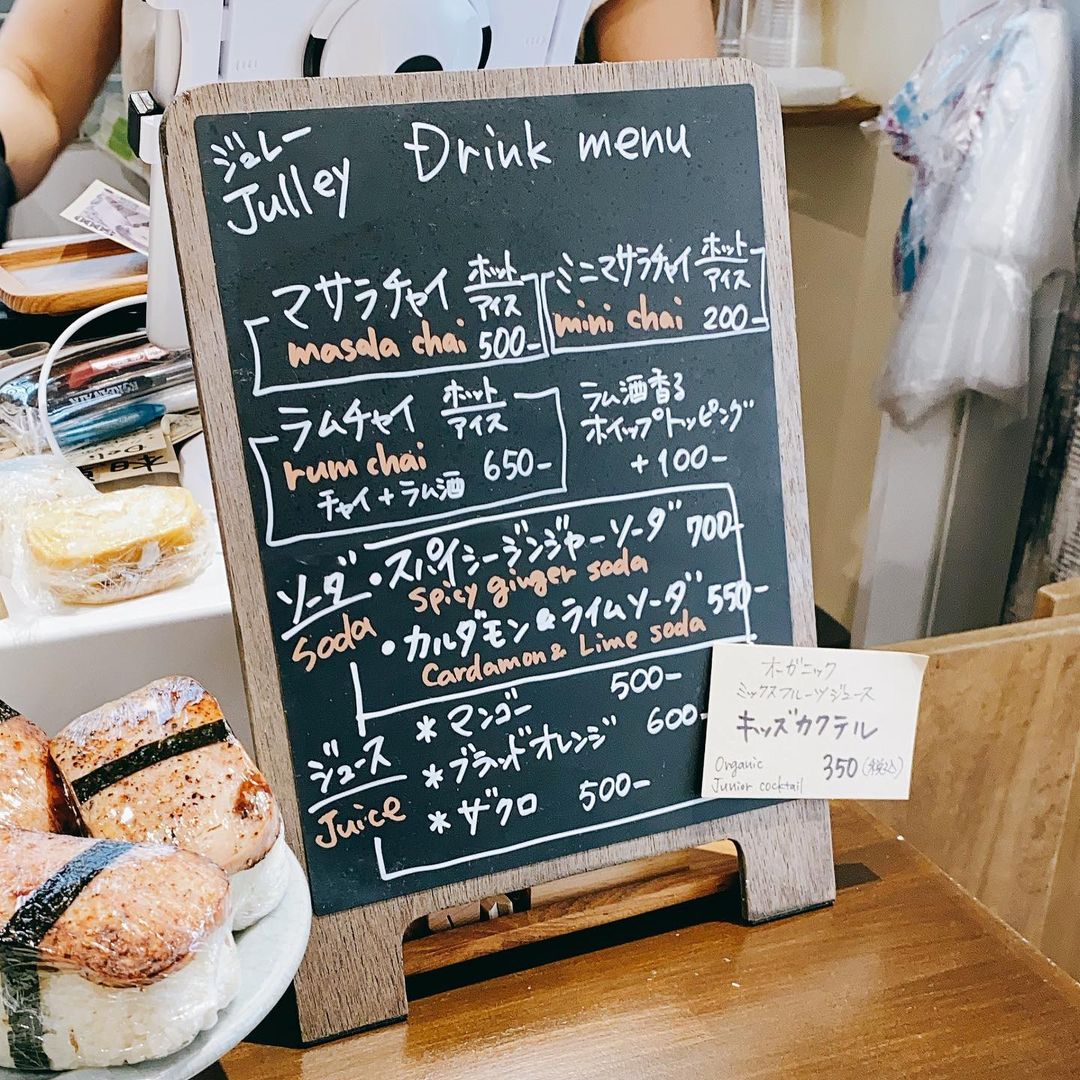 ジュレー
Julley
Drink menu
マサラチャイ ホット
アイス
masala chai 500-
ミニマサラチャイ ホット
アイス
mini chai 200-
ラムチャイ ホット
アイス
rum chai 650-
チャイ+ラム酒
ラム酒香る
ホイップトッピング
+100-
ソーダ
Soda
・スパイシージンジャーソーダ 700-
Spicy ginger soda
・カルダモン&ライムソーダ 550-
Cardamon & Lime soda
ジュース
Juice
*マンゴー 500-
*ブラッドオレンジ 600-
*ザクロ 500-
オーガニック
ミックスフルーツジュース
キッズカクテル
Organic
Junior cocktail
350(税込)